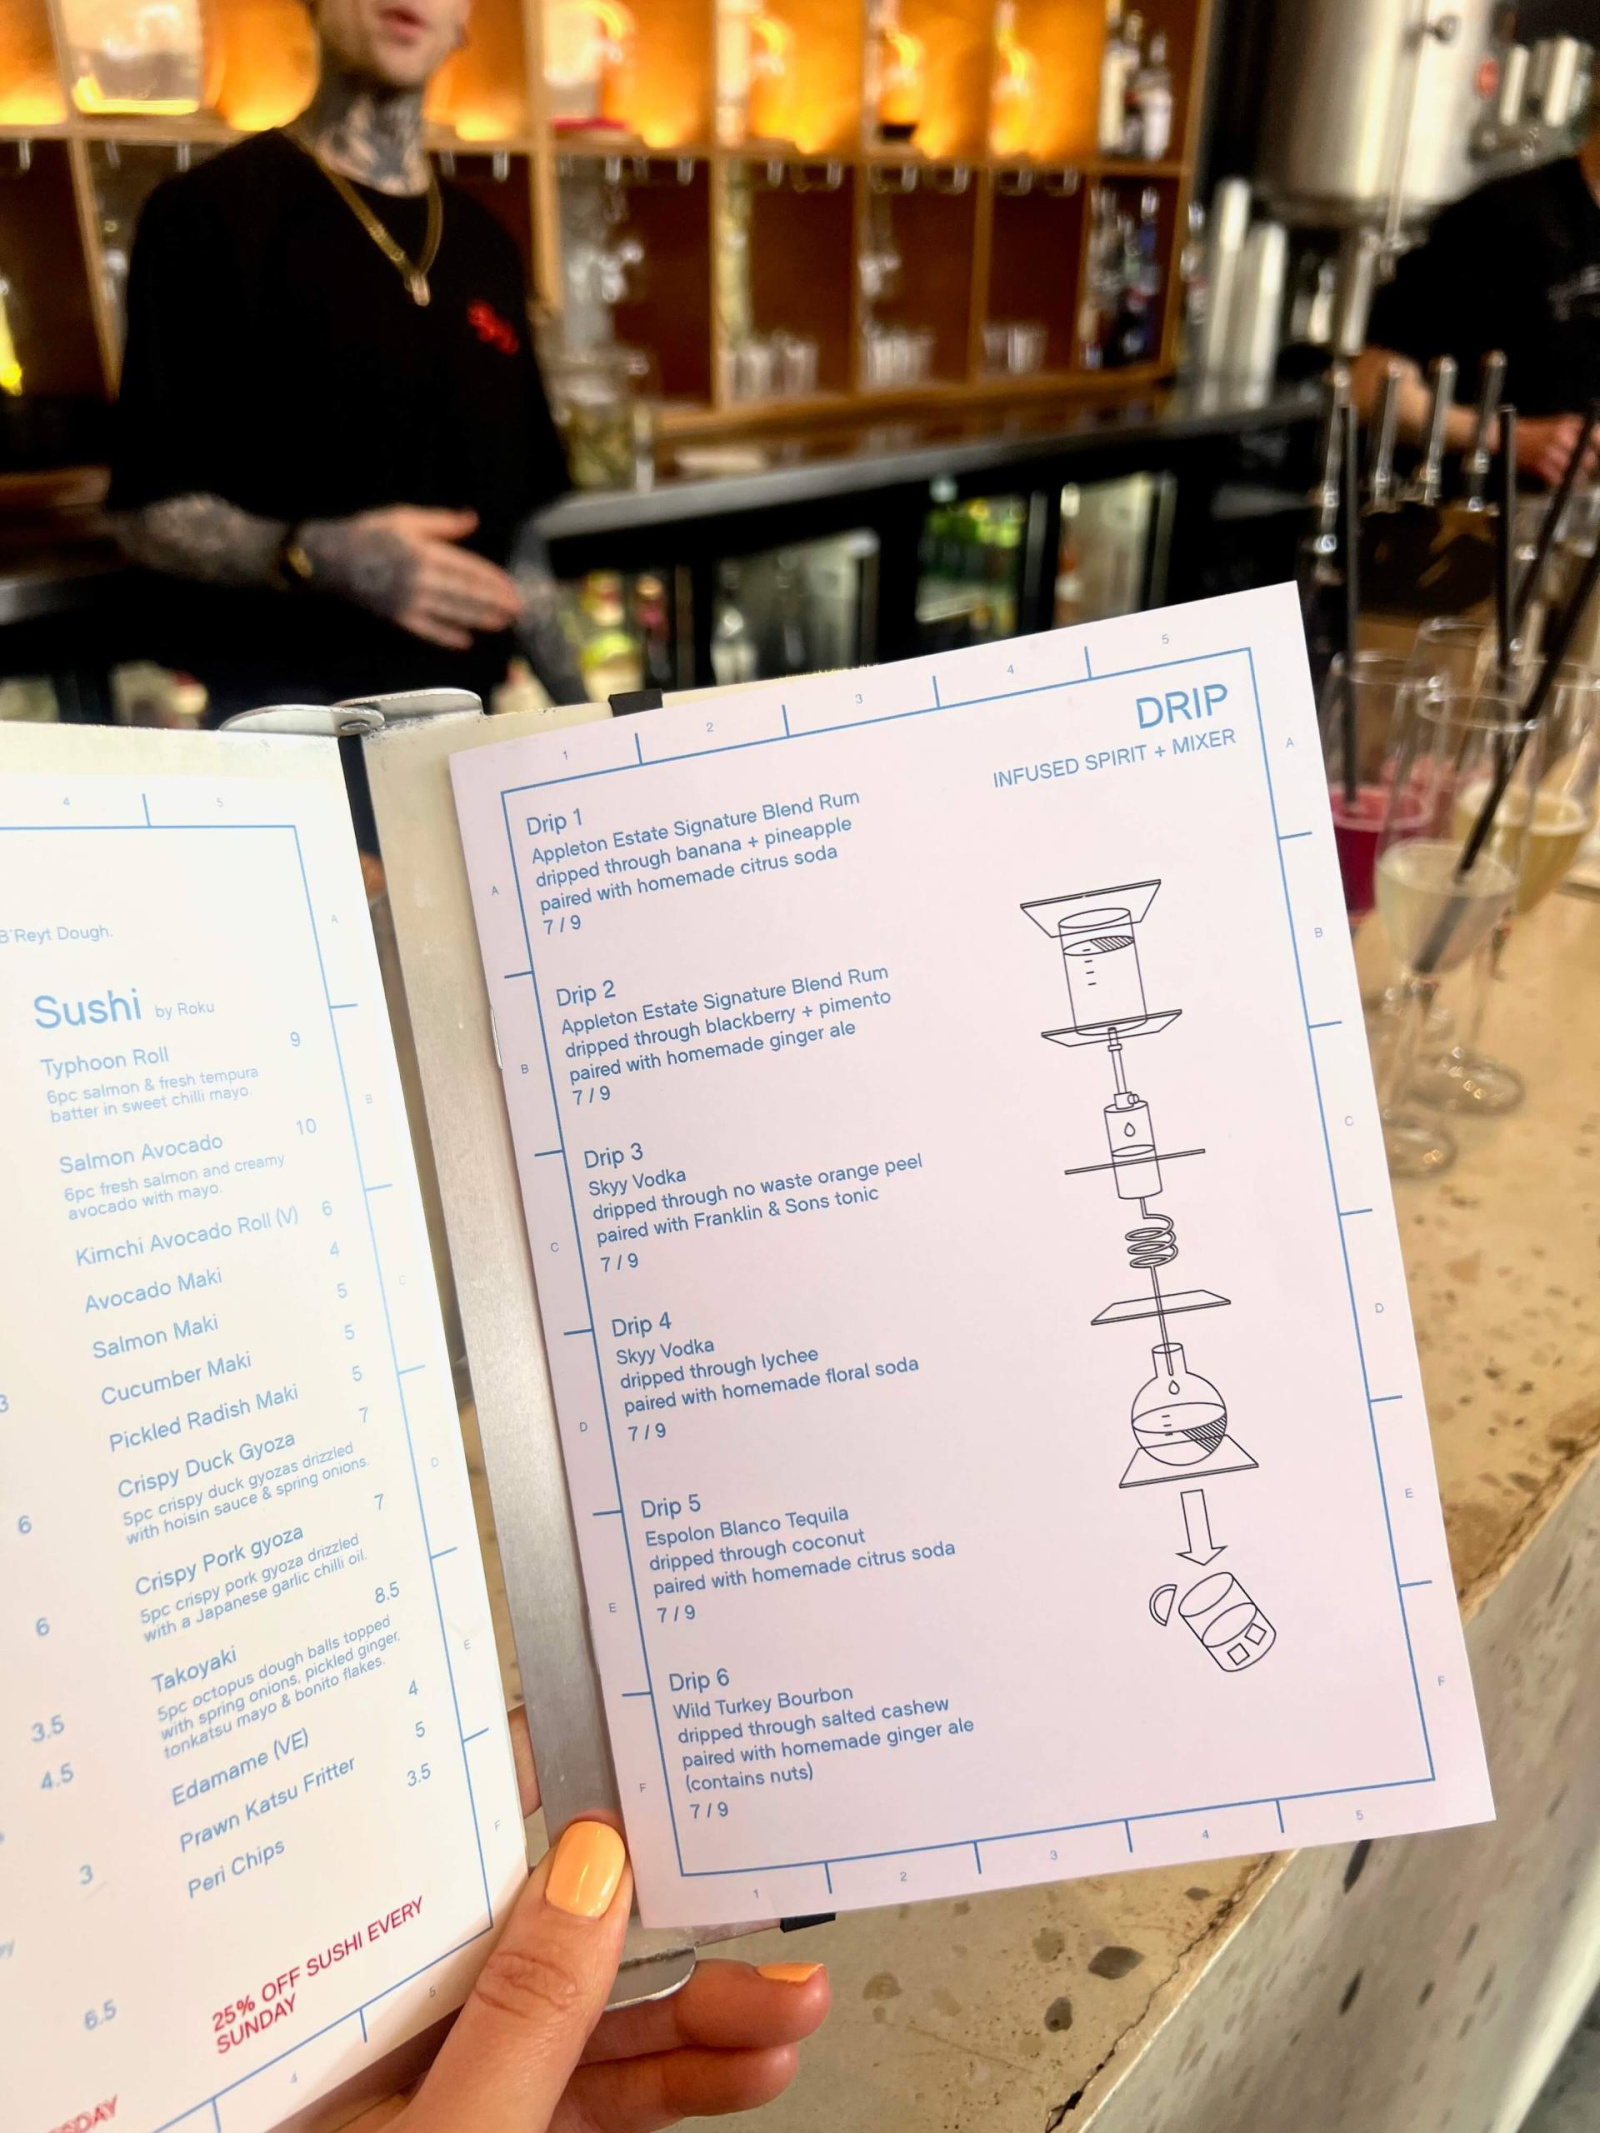 4
5
B'Reyt Dough.
Sushi by Roku
Typhoon Roll 9
6pc salmon & fresh tempura
batter in sweet chilli mayo.
Salmon Avocado 10
6pc fresh salmon and creamy
avocado with mayo.
Kimchi Avocado Roll (V) 6
Avocado Maki 4
Salmon Maki 5
Cucumber Maki 5
Pickled Radish Maki 5
Crispy Duck Gyoza 7
5pc crispy duck gyozas drizzled
with hoisin sauce & spring onions.
Crispy Pork gyoza 7
5pc crispy pork gyoza drizzled
with a Japanese garlic chilli oil.
Takoyaki 8.5
5pc octopus dough balls topped
with spring onions, pickled ginger,
tonkatsu mayo & bonito flakes.
Edamame (VE) 4
Prawn Katsu Fritter 5
Peri Chips 3.5
25% OFF SUSHI EVERY
SUNDAY
3
6
6
3.5
4.5
3
6.5
A
B
C
D
E
F
4
5
1
2
3
4
5
DRIP
INFUSED SPIRIT + MIXER
Drip 1
Appleton Estate Signature Blend Rum
dripped through banana + pineapple
paired with homemade citrus soda
7 / 9
Drip 2
Appleton Estate Signature Blend Rum
dripped through blackberry + pimento
paired with homemade ginger ale
7 / 9
Drip 3
Skyy Vodka
dripped through no waste orange peel
paired with Franklin & Sons tonic
7 / 9
Drip 4
Skyy Vodka
dripped through lychee
paired with homemade floral soda
7 / 9
Drip 5
Espolon Blanco Tequila
dripped through coconut
paired with homemade citrus soda
7 / 9
Drip 6
Wild Turkey Bourbon
dripped through salted cashew
paired with homemade ginger ale
(contains nuts)
7 / 9
A
B
C
D
E
F
A
B
C
D
E
F
1
2
3
4
5